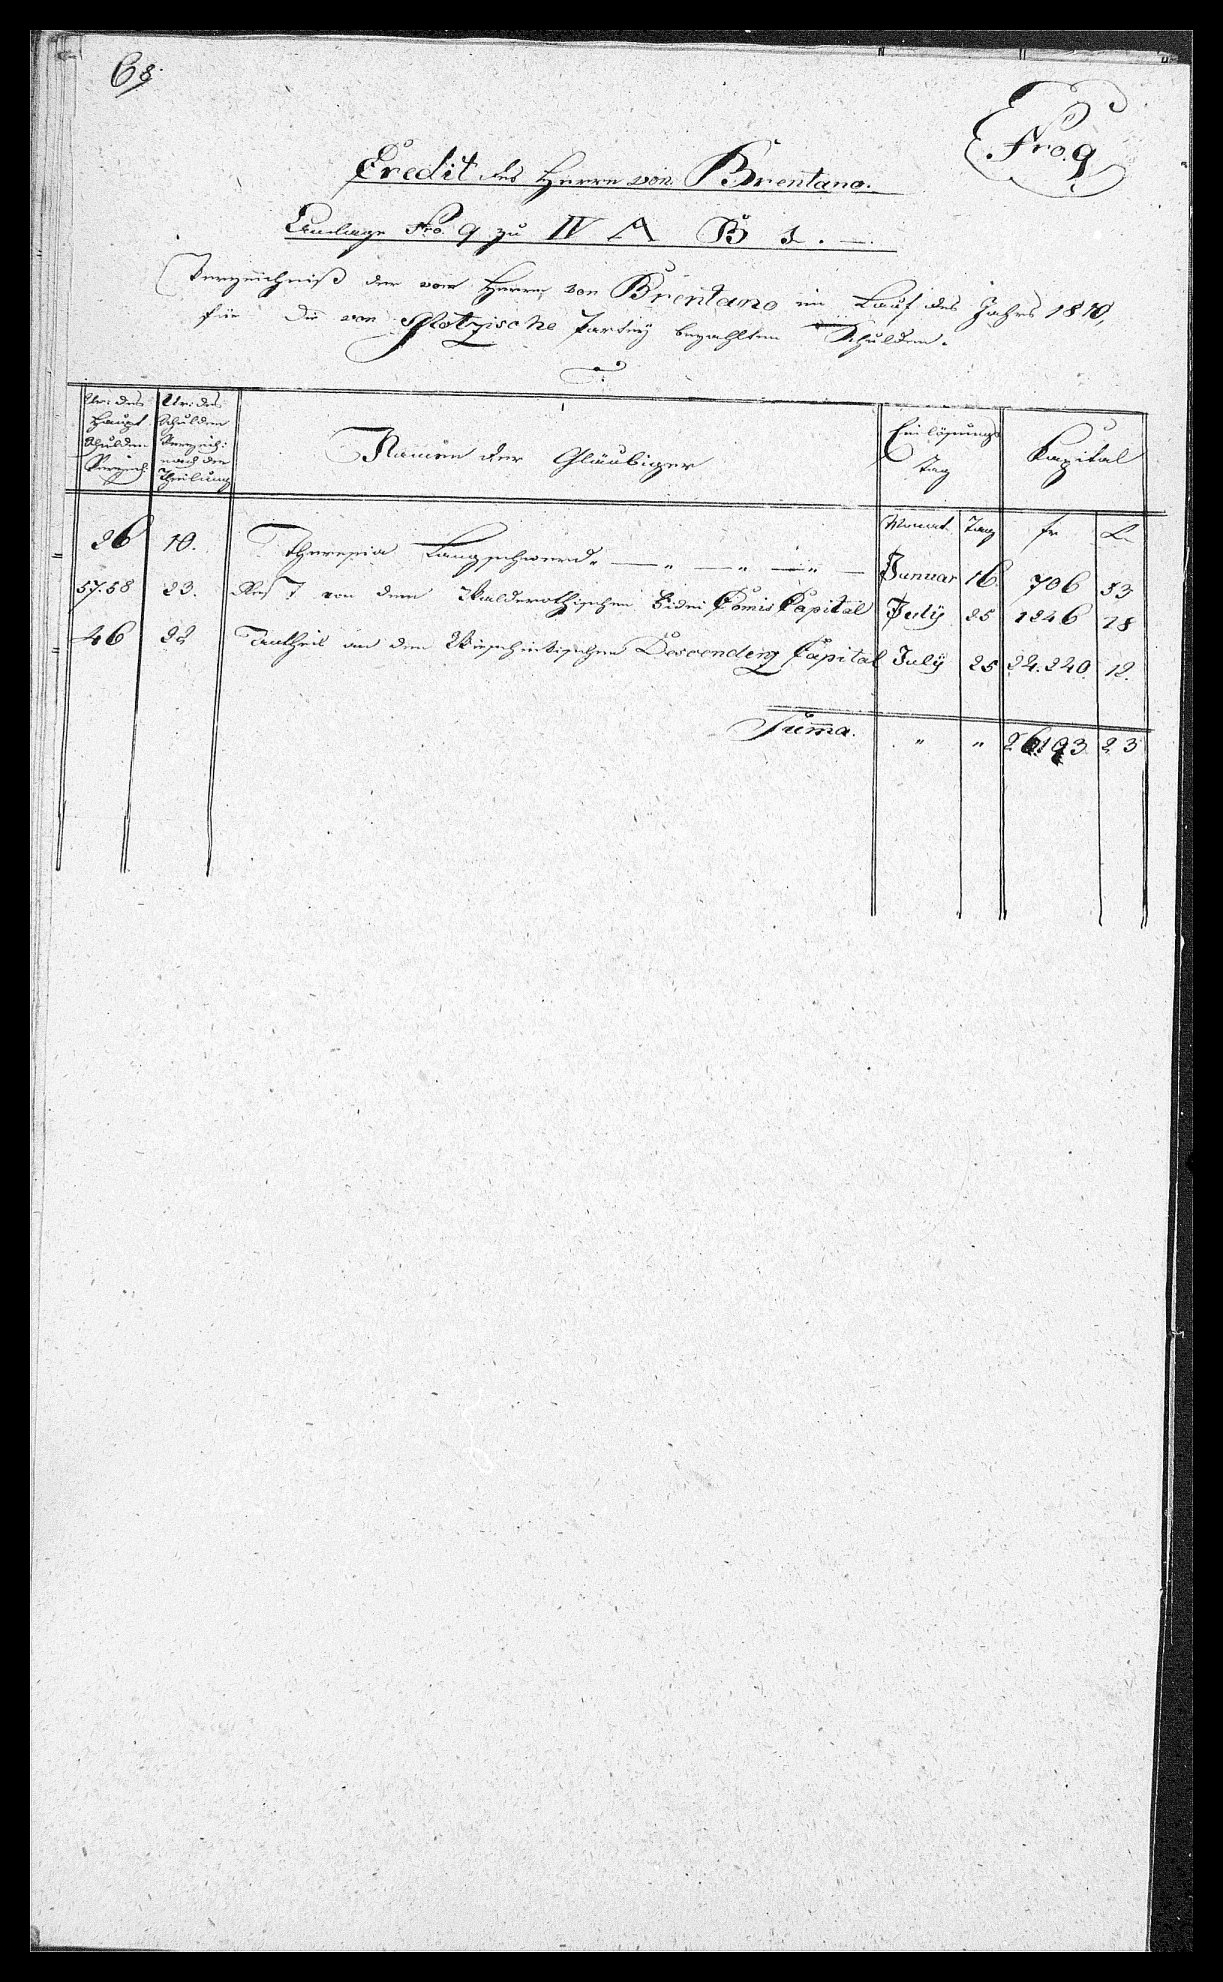 68.
Nro. 9
Credit des Herrn von Brentano.
Beilage Nro. 9 zu IV A B 1.
Verzeichniß der vom Herrn von Brentano im Lauf des Jahrs 1810,
für die von Plotzische Partie bezahlten Schulden.
Nr: des Haupt Schulden Verzeich: | Nr: des Schulden Verzeich: nach der Theilung | Namen der Gläubiger | Einlösungs Tag | Kapital
Monat | Tag | fr | 
26 | 10. | Theresia Langschwerd " — " — " — " — | Januar | 16. | 706 | 53
57.58 | 23. | Rest von dem Walderothischen Fidei Comis Capital | July | 25 | 1246 | 18
46 | 22 | Antheil an dem Capital | July | 25 | 24.240. | 12.
Suma. | " | " | 26193 | 23